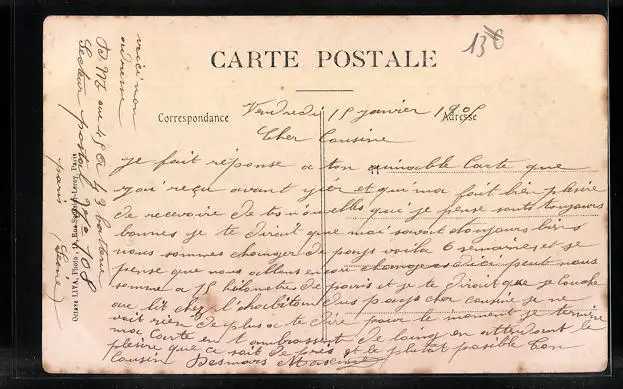 CARTE POSTALE
136
Correspondance
Adresse
Vendredi 15 janvier
Cher Cousine
Je fait réponse a ton aimable Carte que
j'ai reçu avant yier et qui ma fait bien plesire
de recevoire de tes nouvelles qui je pense sont toujours
bonnes je te dirait que moi savat toujours biens
nous sommes changer de pays voila 6 semaines et je
pense que nous allons encore changer
somme a 15 kilometres de paris et je te dirait que je couche
au lit chez l'habitan du pays cher cousine je ne
voit rien de plus a te dire pour le moment je termine
ma Carte en t'ambrassent de loing en attendant le
plesire que ce sait de près et le plutat posible ton
Cousin Desmares
voici mon
adresse
43
Secteur postal No 108
paris (Seine)